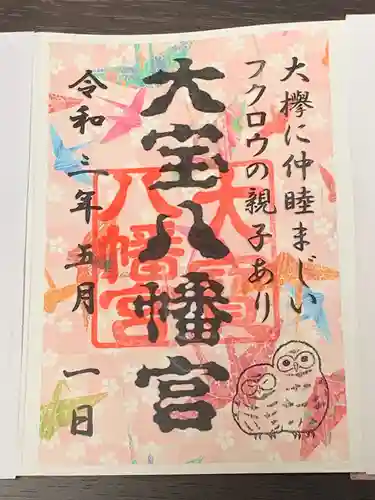 大欅に仲睦まじい
フクロウの親子あり
大宝八幡宮
大寶
八幡宮
令和三年五月一日